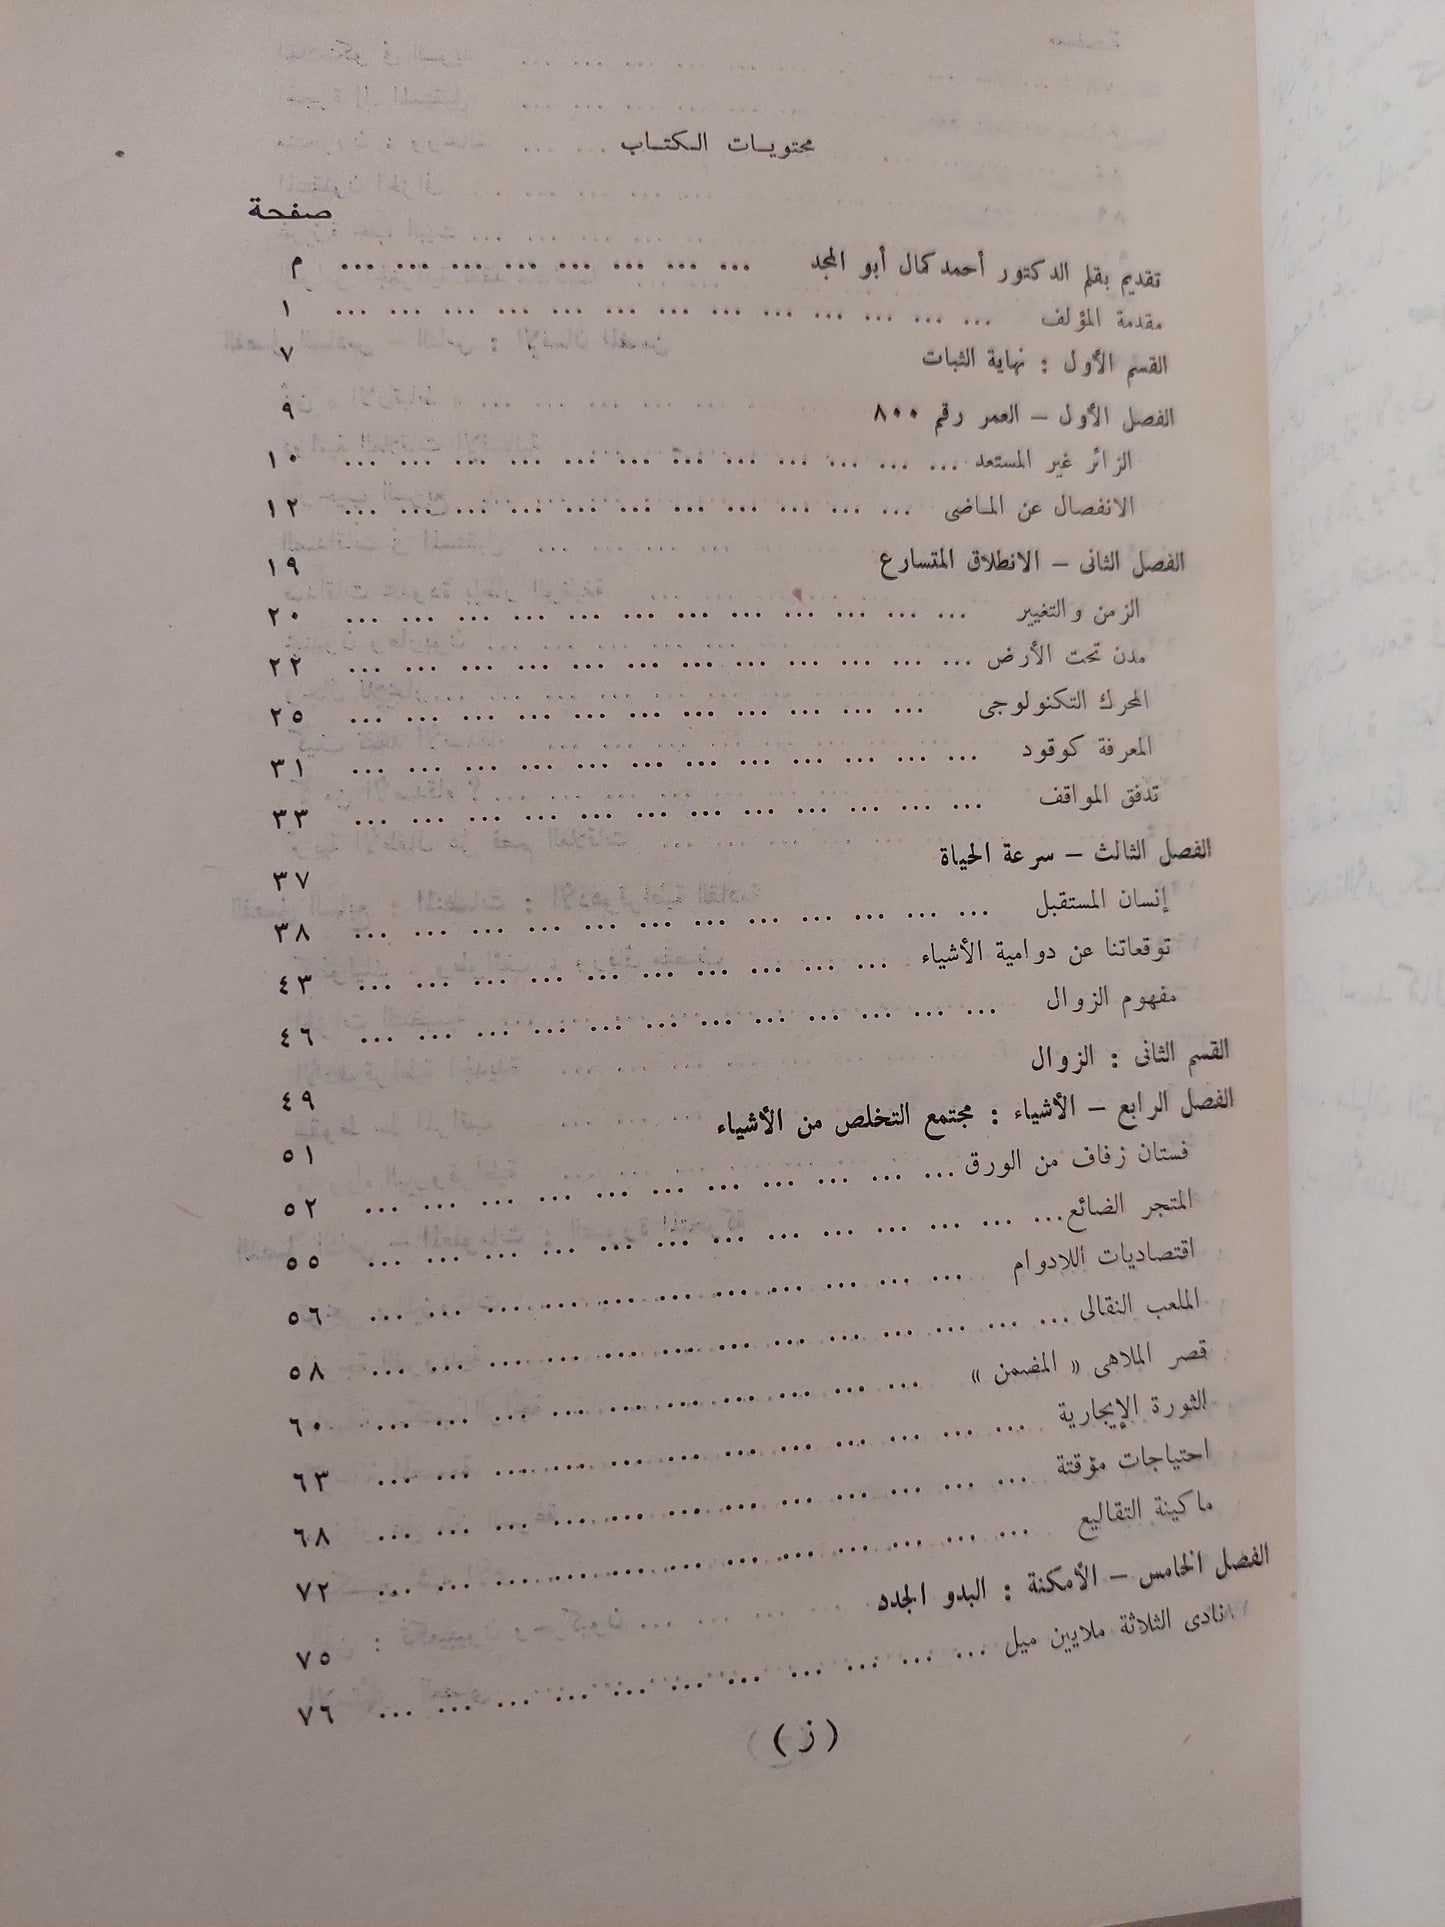 محتويات الكتاب
صفحة
تقديم بقلم الدكتور أحمد كمال أبو المجد ... ... ... ... ... ... ... ... م
مقدمة المؤلف ... ... ... ... ... ... ... ... ... ... ... ... ... ١
القسم الأول : نهاية الثبات ٧
الفصل الأول – العمر رقم ٨٠٠ ٩
الزائر غير المستعد ... ... ... ... ... ... ... ... ... ... ... ... ١٠
الانفصال عن الماضى ... ... ... ... ... ... ... ... ... ... ... ١٢
الفصل الثانى – الانطلاق المتسارع ١٩
الزمن والتغيير ... ... ... ... ... ... ... ... ... ... ... ... ٢٠
مدن تحت الأرض ... ... ... ... ... ... ... ... ... ... ... ... ٢٢
المحرك التكنولوجى ... ... ... ... ... ... ... ... ... ... ... ٢٥
المعرفة كوقود ... ... ... ... ... ... ... ... ... ... ... ... ٣١
تدفق المواقف ... ... ... ... ... ... ... ... ... ... ... ... ٣٣
الفصل الثالث – سرعة الحياة ٣٧
إنسان المستقبل ... ... ... ... ... ... ... ... ... ... ... ... ٣٨
توقعاتنا عن دوامية الأشياء ... ... ... ... ... ... ... ... ... ... ٤٣
مفهوم الزوال ... ... ... ... ... ... ... ... ... ... ... ... ٤٦
القسم الثانى : الزوال ٤٩
الفصل الرابع – الأشياء : مجتمع التخلص من الأشياء ٥١
فستان زفاف من الورق ... ... ... ... ... ... ... ... ... ... ... ٥٢
المتجر الضائع ... ... ... ... ... ... ... ... ... ... ... ... ... ٥٥
اقتصاديات اللادوام ... ... ... ... ... ... ... ... ... ... ... ٥٦
الملعب النقالى ... ... ... ... ... ... ... ... ... ... ... ... ... ٥٨
قصر الملاهى « المضمن » ... ... ... ... ... ... ... ... ... ... ٦٠
الثورة الإيجارية ... ... ... ... ... ... ... ... ... ... ... ... ٦٣
احتياجات مؤقتة ... ... ... ... ... ... ... ... ... ... ... ... ٦٨
ماكينة التقاليع ... ... ... ... ... ... ... ... ... ... ... ... ٧٢
الفصل الخامس – الأمكنة : البدو الجدد ٧٥
نادى الثلاثة ملايين ميل ... ... ... ... ... ... ... ... ... ... ... ٧٦
( ز )